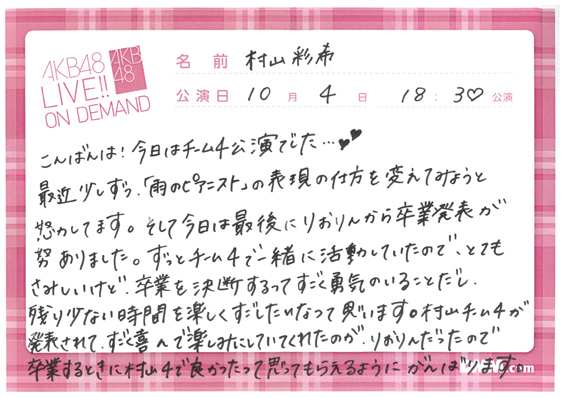 AKB48
LIVE!!
ON DEMAND
AKB
48
名 前 村山彩希
公演日 10 月 4 日 18 : 30 公演
こんばんは！今日はチーム4公演でした…
最近少しずつ、「雨のピアニスト」の表現の仕方を変えてみようと
努力してます。そして今日は最後にりおりんから卒業発表が
努 ありました。ずっとチーム4で一緒に活動していたので、とても
さみしいけど、卒業を決断するってすごく勇気のいることだし、
残り少ない時間を楽しくすごしたいなって思います。村山チーム4が
発表されて、すごく喜んで楽しみにしていてくれたのが、りおりんだったので
卒業するときに村山4で良かったって思ってもらえるようにがんばります
.com